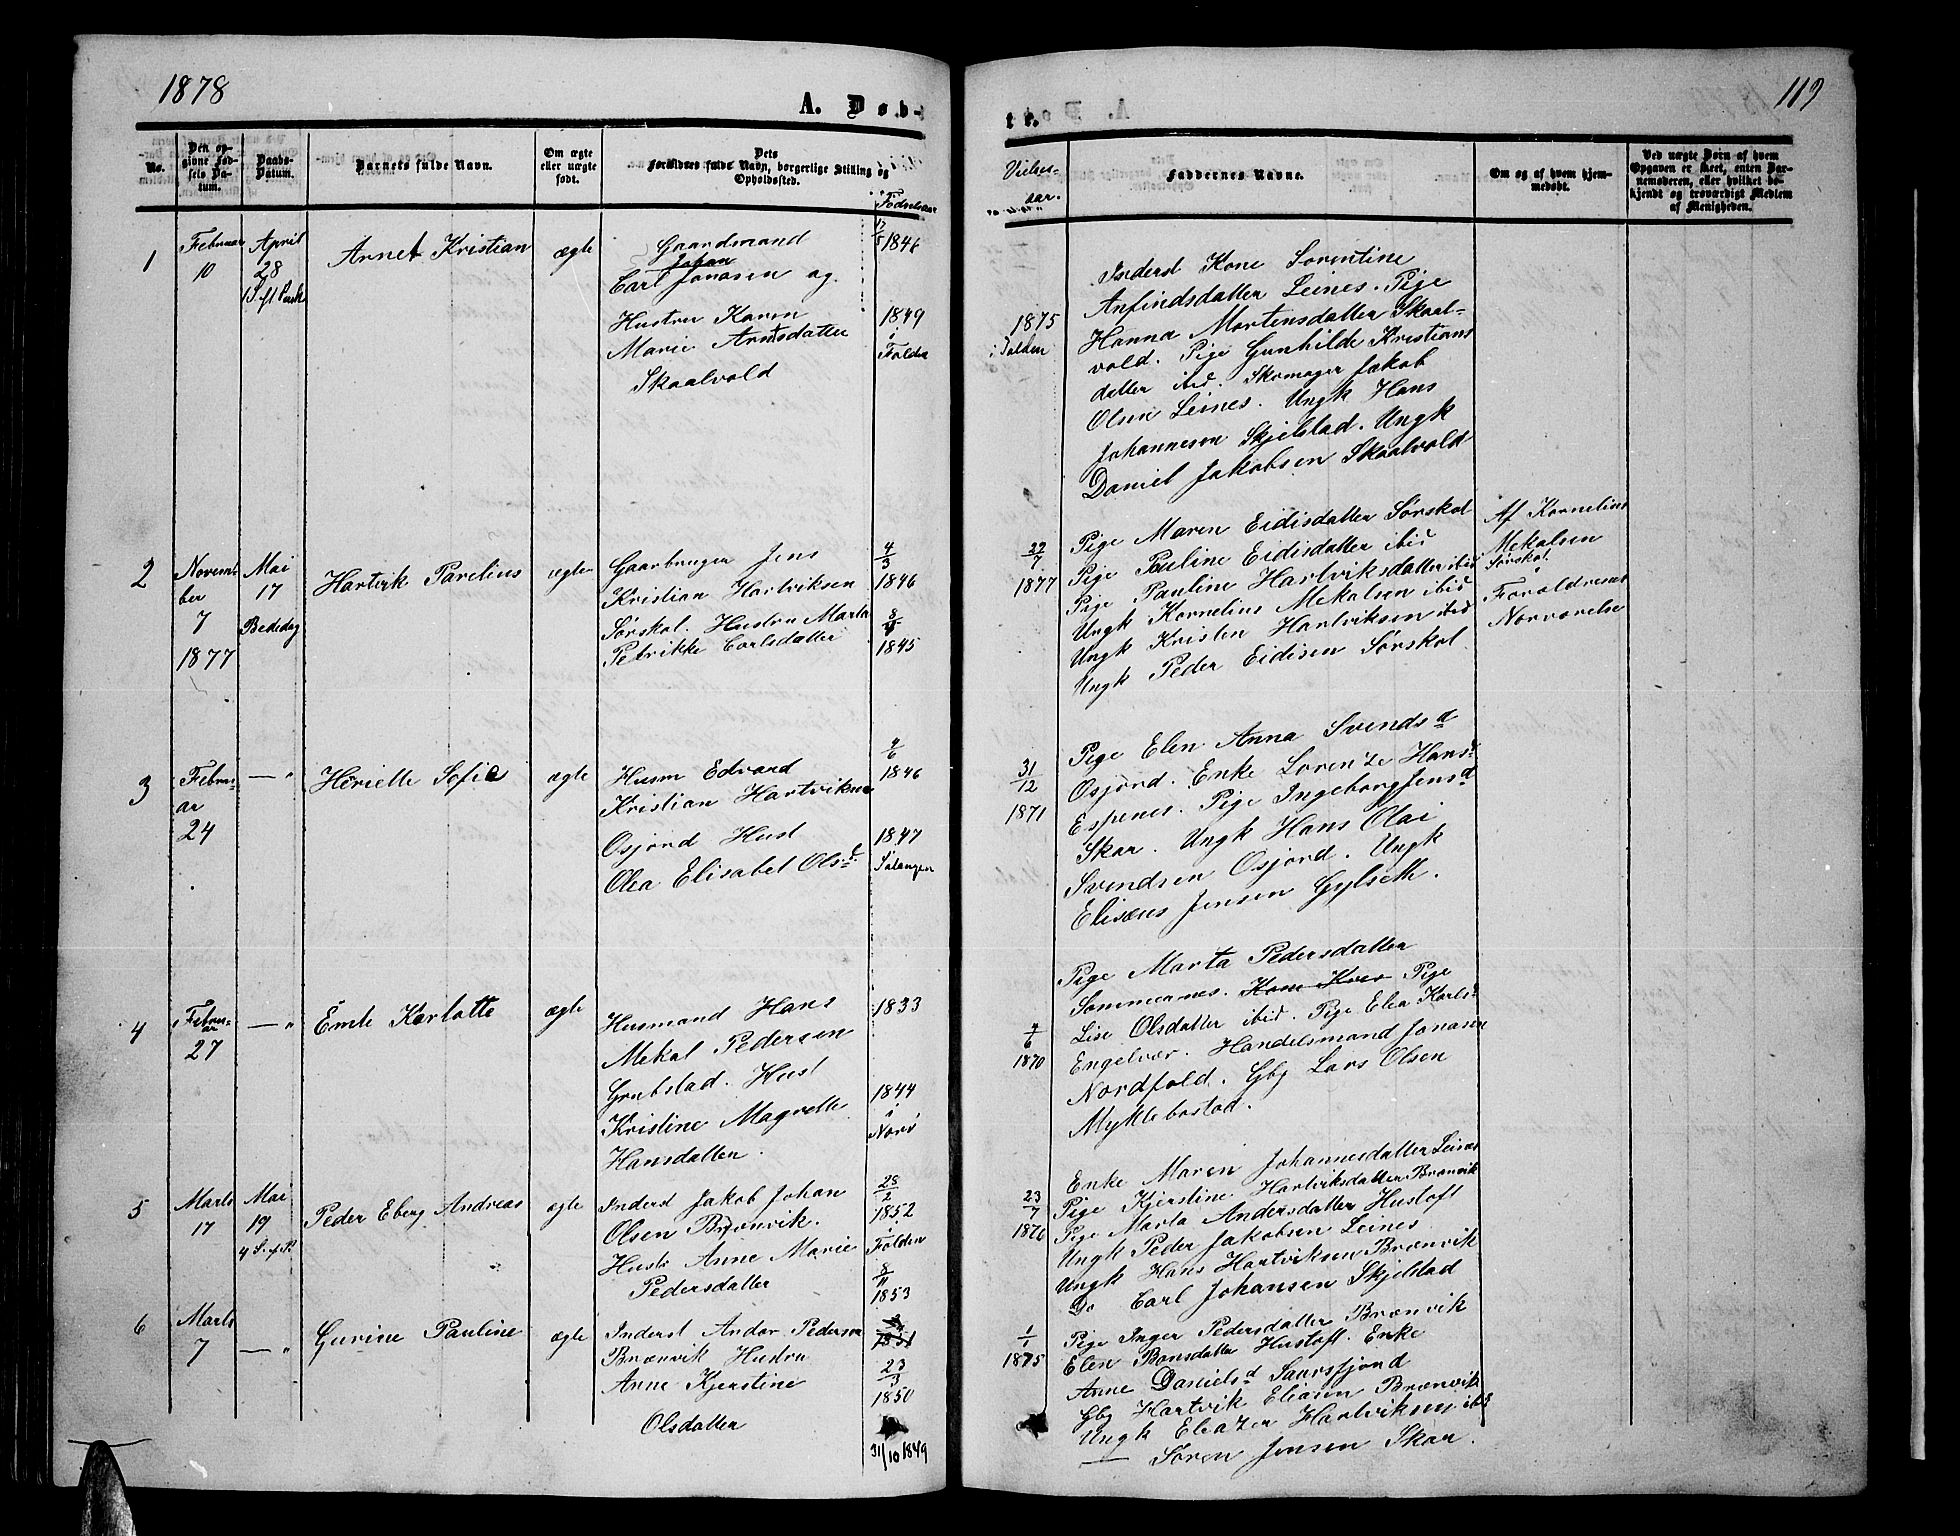 1878
A. Døb-
No.
Den op-
givne Fød-
sels Da-
tum.
Daabs-
Datum.
Barnets fulde Navn.
Om ægte
eller uægte
født.
Dets
Forældres fulde Navn, borgerlige Stilling og
Opholdssted.
Fødselsaar
1
Februar
10
April
28
Arnet Kristian
ægte
Gaardmand
Johan
Carl Jonasen og
Hustru Karen
Marie Arntsdatter
Skaalvold
1846
1849
i
Folden
2
Novem-
ber
7
1877
Mai
17
Bededag
Hartvik Parelius
ægte
Gaardbruger Jens
Kristian Hartviksen
Sørskot. Hustru Marta
Petrikke Carlsdatter
4/3
1846
1845
3
Febru-
ar
24
— "
Henriette Sofie
ægte
Husm Edvard
Kristian Hartviksen
Osjord Hust
Olea Elisabet Ols d
4/6
1846
1847
Salangen
4
Febru-
ar
27
— "
Emte Karlotte
ægte
Husmand Hans
Mekal Pedersen
Grubstad. Hust
Kristine Magrette
Hansdatter.
1833
1844
i
Norv
5
Marts
17
Mai
19
4 S. e P.
Peder Eberg Andreas
ægte
Inderst Jakob Johan
Olsen Brænvik.
Hustr Anne Marie
Pedersdatter
28/2
1852
i
Folden
8/11
1853
6
Marts
7
— "
Gurine Pauline
ægte
Inderst Andor Pedersen
Brænvik Hustru
Anne Kjerstine
Olsdatter
1851
23/3
1850
31/10 1849
te.
119
Vielses-
aar.
Faddernes Navne.
Om og af hvem hjem-
medøbt.
Ved uægte Børn af hvem
Opgaven er skeet, enten Bar-
nemoderen, eller hvilket be-
kjendt og troværdigt Medlem
af Menigheden.
1875
i Folden
Inderst Kone Sorentine
Anfindsdatter Leines. Pige
Hanna Mortensdatter Skaal-
vold. Pige Gunhilde Kristians
datter ibid. Skomager Jakob
Olsen Leines. Ungk Hans
Johannesen Skjelstad. Ungk
Daniel Jakobsen Skaalvold
22/7
1877
Pige Maren Eidisdatter Sørskot
Pige Pauline Eidisdatter ibid
Pige Pauline Hartviksdatter ibid
Ungk Kornelius Mekalsen ibid
Ungk Kristen Hartviksen ibid
Ungk Peder Eidisen Sørskot
Af Kornelius
Mekalsen
Sørskot.
i
Forældrenes
Nærværelse
31/12
1871
Pige Elen Anna Svends d
Osjord. Enke Lorentze Hans d
Espenes. Pige Ingeborg Jens d
Skar. Ungk Hans Olai
Svendsen Osjord. Ungk
Elisæus Jensen Gylseth.
4/6
1870
Pige Marta Pedersdatter
Sommernes. Kone Pige
Lise Olsdatter ibid. Pige Elea Karls d
Engelvær. Handelsmand Jonasen
Nordfold. Gbg Lars Olsen
Myklebostad.
23/7
1876
Enke Maren Johannesdatter Leines
Pige Kjerstine Hartviksdatter Brænvik
Pige Marta Andersdatter Hustoft
Ungk Peder Jakobsen Leines
Ungk Hans Hartviksen Brænvik
Do Carl Johansen Skjelstad
1/1
1875
Pige Inger Pedersdatter Brænvik
Elen Bonsdatter Hustoft. Enke
Anne Daniels d Saursfjord
Gbg Hartvik Eliasen Brænvik
Ungk Eleazer Hartviksen ibid
— Søren Jensen Skar.